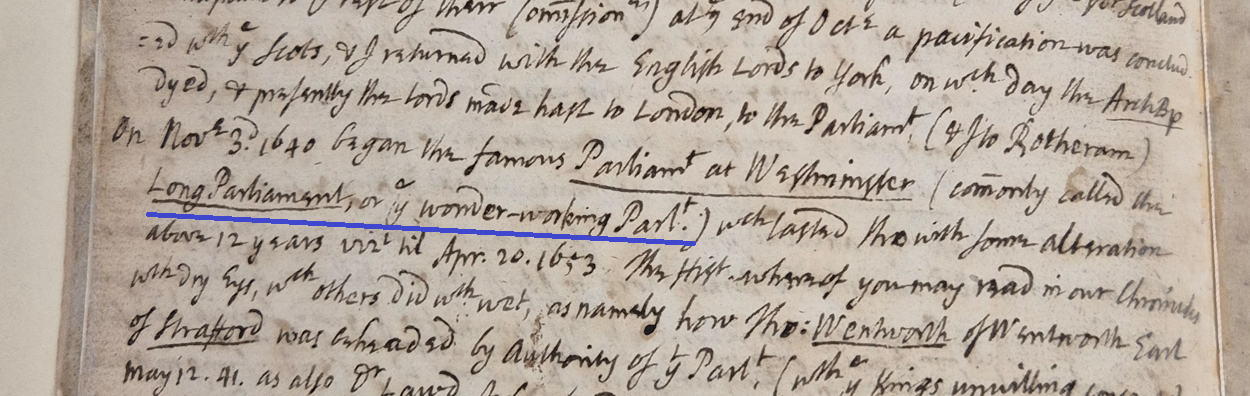 of their Com̄ission) at yͤ end of Octr. a pacification was conclud
=ed wth yͤ Scots, & I returned with the English Lords to York, on wch day the ArchBp
dyed, & presently the Lords made hast to London, to the Parliamt. (& I to Rotheram)
On Novr 3d. 1640 began the famous Parliamt at Westminster (com̄only called the
Long Parliament, or yͤ wonder-working Parlt.) wch lasted tho with some alteration
above 12 years vizt til Apr. 20. 1653 The Hist. whereof you may read in our Chronicles
wth dry Eys, wch others did wth wet, as namely how Tho: Wentworth of Wentworth Earl
of Strafford was beheaded by Authority of yt Parlt. (wth yͤ Kings unwilling
May 12. 41. as also Dr Lawd